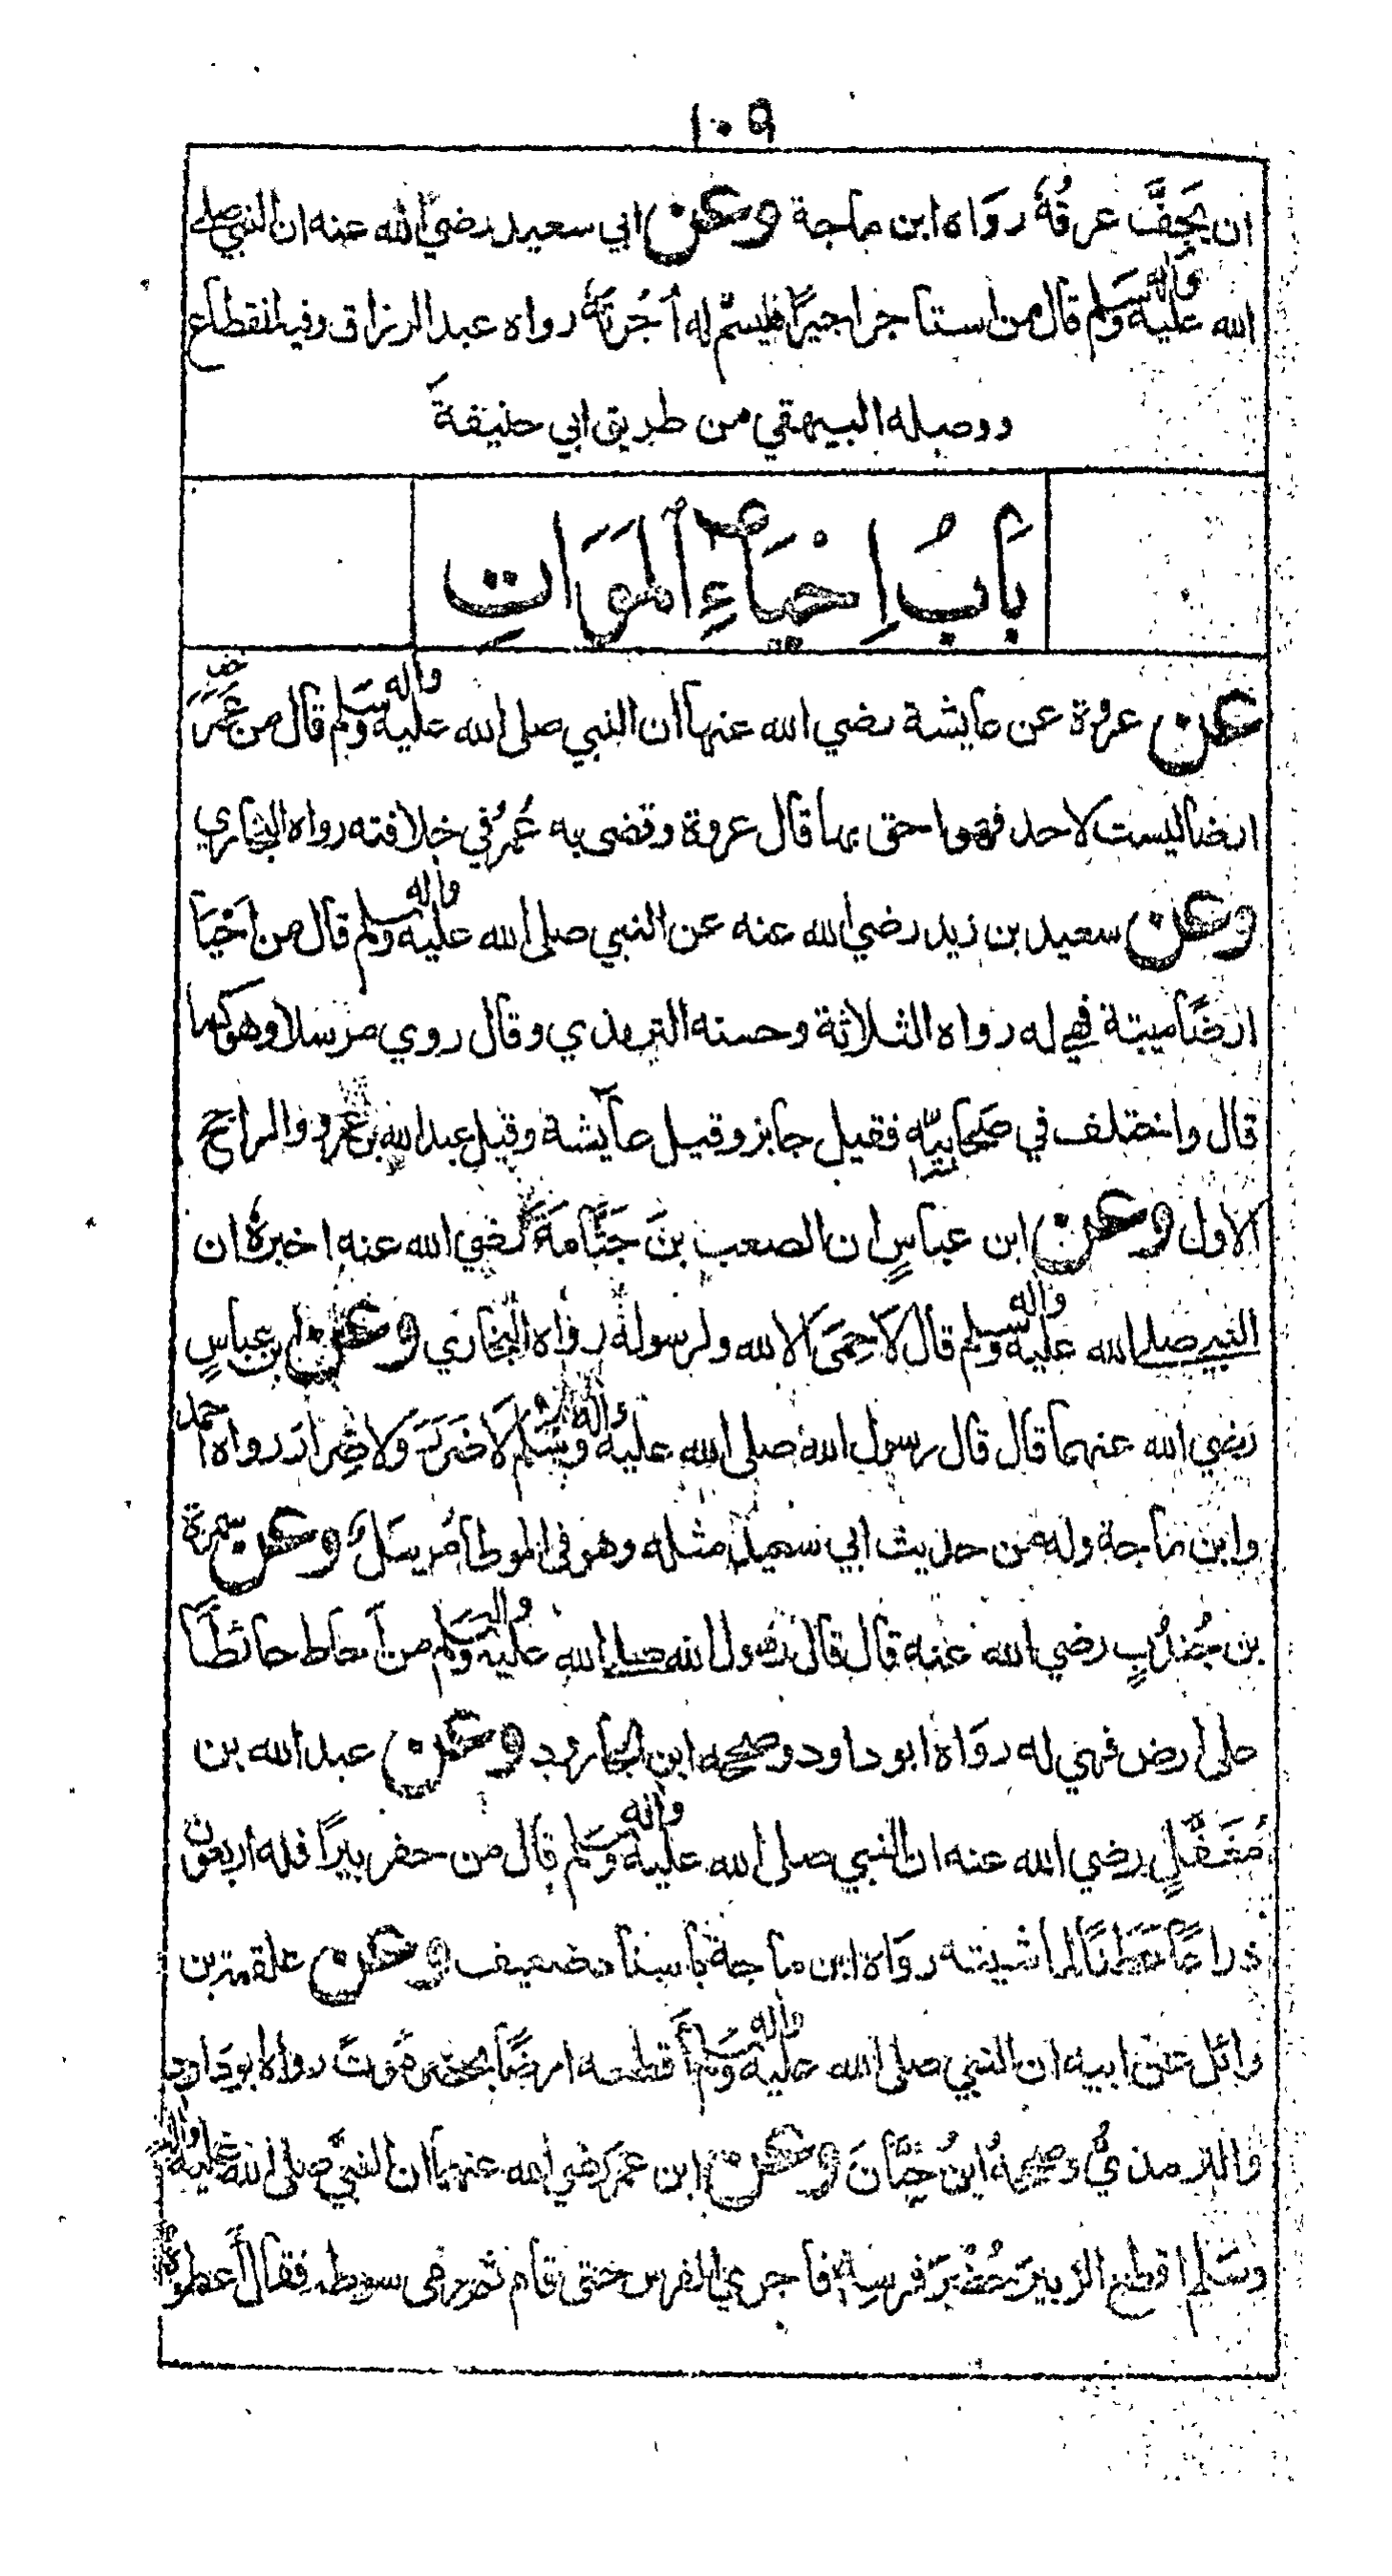 ١٠٩
ان يَجِفَّ عرقُهُ رَوَاه ابن ماجة وعن ابي سعيد رضي الله عنه ان النبي صلى
الله عليه وَاٰله وسَلم قال من استاجر اجيرًا فليسَمّ له اُجْرَتَهُ رواه عبد الرزاق وفيه انقطاع
ووصله البيهقي من طريق ابي حنيفةَ
بَابُ اِحْيَاءِ المَوَاتِ
عن عروة عن عايشة رضي الله عنها ان النبي صلى الله عليه واٰله وسَلم قال من عَمَّرَ
ارضا ليست لاحد فهو احق بها قال عروة وقضى به عُمَرُ في خلافته رواه البخاري
وعن سعيد بن زيد رضي الله عنه عن النبي صلى الله عليه واٰله وسلم قال من اَحْيَا
ارضًا ميتة فهي له رواه الثلاثة وحسنه الترمذي وقال روي مرسلا وهو كما
قال واختلف في صَحَابِيّه فقيل جابر وقيل عآيشة وقيل عبد الله بن عمرو والراجح
الاول وعن ابن عباسٍ ان الصعب بنَ جَثَّامَةَ رضي الله عنه اخبرهُ ان
النبي صلى الله عليه واٰله وسلم قال لا حِمَى الا لله ولرسوله رواه البخاري وعن ابن عباسٍ
رضي الله عنهما قال قال رسول الله صلى الله عليه واٰله وسَلم لا ضَرَرَ وَلا ضِرارَ رواه احمد
وابن ماجة وله من حديث ابي سعيد مثله وهو في الموطأ مُرسَلٌ وعن سمرة
بن جُندُبٍ رضي الله عنه قال قال رسول الله صلى الله عليه واٰله وسَلم من اَحاط حائطًا
على ارض فهي له رَوَاه ابو داود وصححه ابن الجارود وعن عبد الله بن
مُغَفَّلٍ رضي الله عنه ان النبي صلى الله عليه واٰله وسَلم قال من حفر بيرًا فله اربعون
ذراعًا عَطَنًا لماشيته رَوَاه ابن ماجة باسناد ضعيف وعن علقمة بن
وائل عن ابيه ان النبي صلى الله عليه واٰله وسَلم أَقطعه ارضًا بحضرَموتَ رواه ابو داود
والترمذيُّ وصححهُ ابنُ حِبَّانَ وعن ابن عمر رضي الله عنهما ان النبيَّ صلى الله عليه واٰله
وسَلم اقطع الزبيرَ حُضْرَ فرسِهِ فاجرى الفرس حتى قام ثم رمى سوطه فقال أعطوهُ